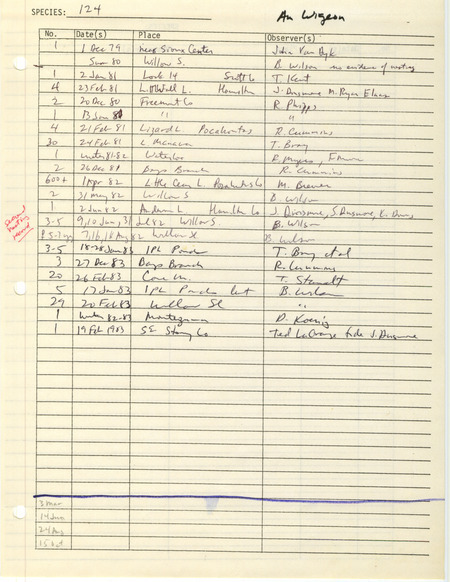 SPECIES: 124
Am Wigeon
No. Date(s) Place Observer(s)
1 1 Dec 79 near Sioux Center John Van Dyk
Sum 80 Willow S. B. Wilson no evidence of nesting
1 2 Jan 81 Lock 14 Scott Co T. Kent
4 23 Feb 81 L. Hamilton J. Dinsmore M. Ryan
2 20 Dec 80 Freemont Co R. Phipps
1 13 Jan 81 " "
4 21 Feb 81 Lizard L. Pocahontas R. Cummins
30 24 Feb 81 L Manawa T. Bray
1 winter 81-82 Waterloo R. Myers,
2 26 Dec 81 Days Branch R. Cummins
600+ 1 Apr 82 Little Clear L. Pocahontas Co M. Brewer
2 31 May 82 Willow S B. Wilson
1 2 Jun 82 Anderson L Hamilton Co J. Dinsmore, S. Dinsmore,
3-5 9, 10 Jun, 31 Jul 82 Willow S. B. Wilson
7, 16, 18 Aug 82 Willow Sl B. Wilson
3-5 Jan 83 IPL Ponds T. Bray et al
3 27 Dec 83 Days Branch R. Cummins
20 26 Feb 83 Cone M. T. Staudt
5 17 Jan 83 IPL Ponds B. Wilson
29 20 Feb 83 Willow Sl "
1 winter 82-83 Montezuma D. Koenig
1 19 Feb 1983 SE Story Co Ted LaGrange fide J. Dinsmore
3 Mar
14 Jun
24 Aug
15 Oct